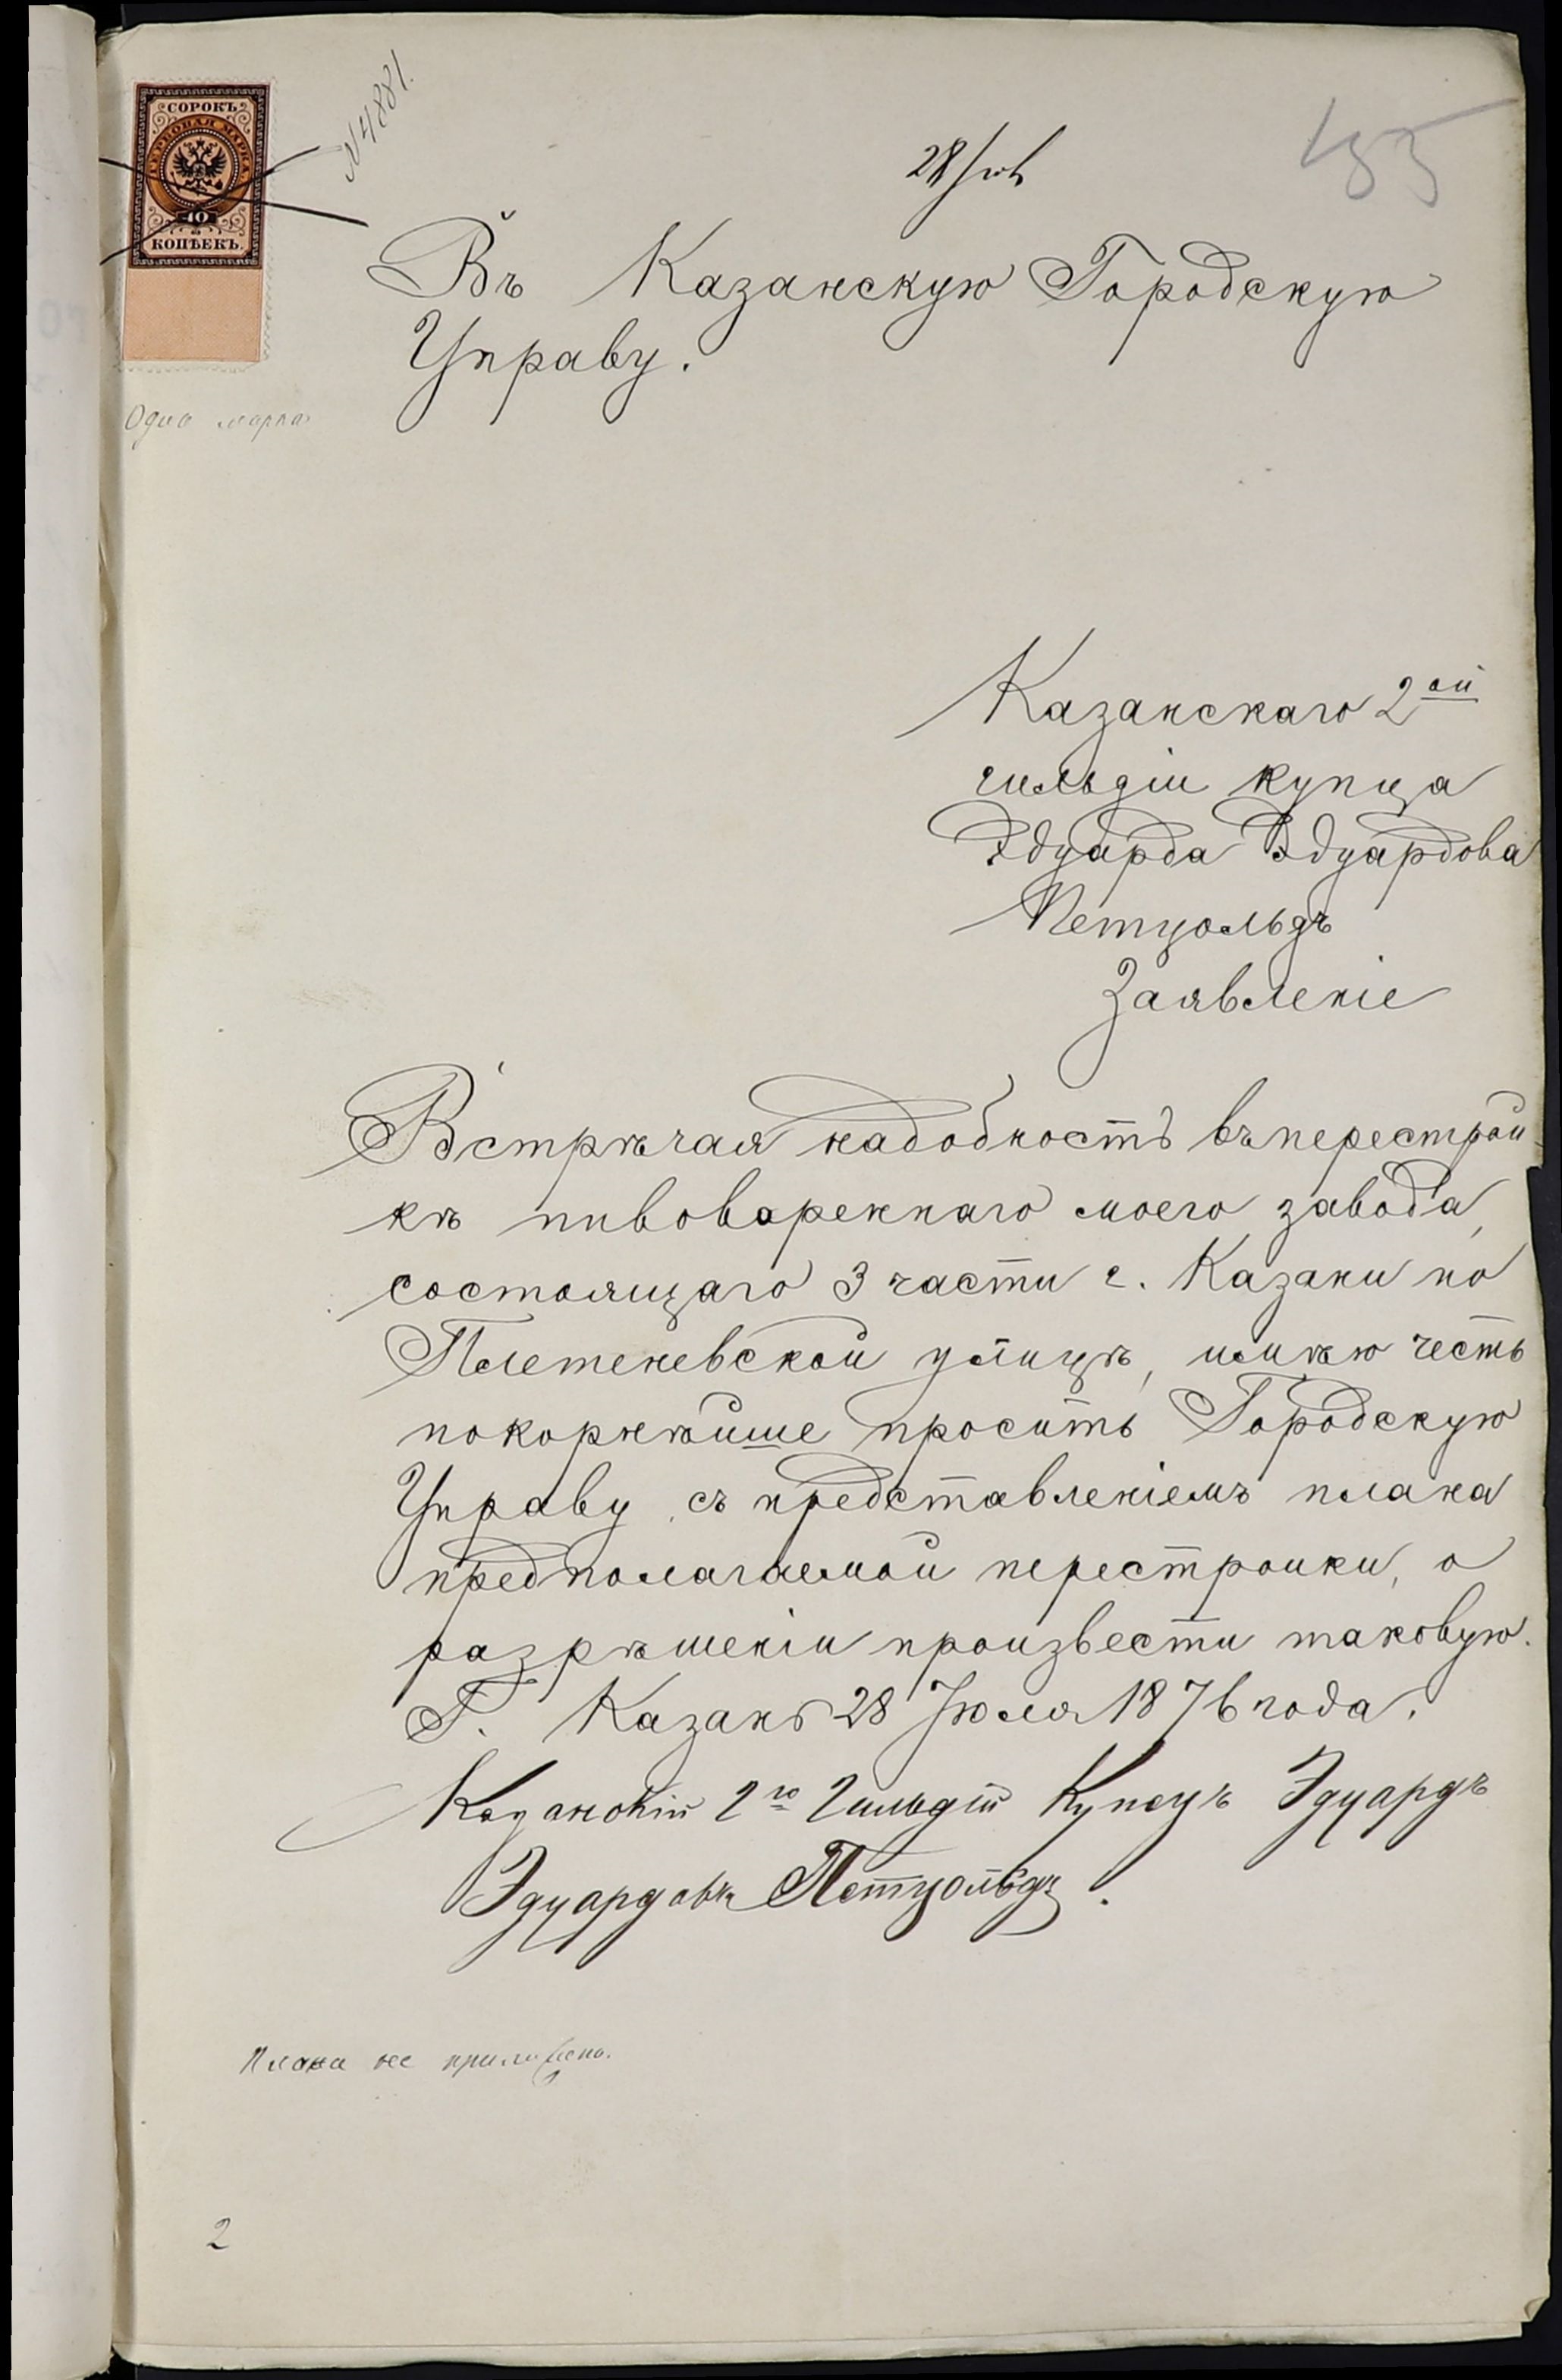 СОРОКЪ
ГЕРБОВАЯ МАРКА
40
КОПѢЕКЪ
N 4881.
28/
Въ Казанскую Городскую
Управу.
Одна марка
Казанскаго 2ой
гильдіи купца
Эдуарда Эдуардова
Петцольдъ
Заявленіе
Встрѣчая надобность въ перестрой-
кѣ пивовареннаго моего завода,
состоящаго 3 части г. Казани по
Плетеневской улицѣ, имѣю честь
покорнѣйше просить Городскую
Управу, съ представленіемъ плана
предполагаемой перестройки, о
разрѣшеніи произвести таковую.
Г. Казань 28 Іюля 1876 года.
Казанскій 2го Гильдіи Купецъ Эдуардъ
Эдуардовъ Петцольдъ.
Плана не приложено.
2